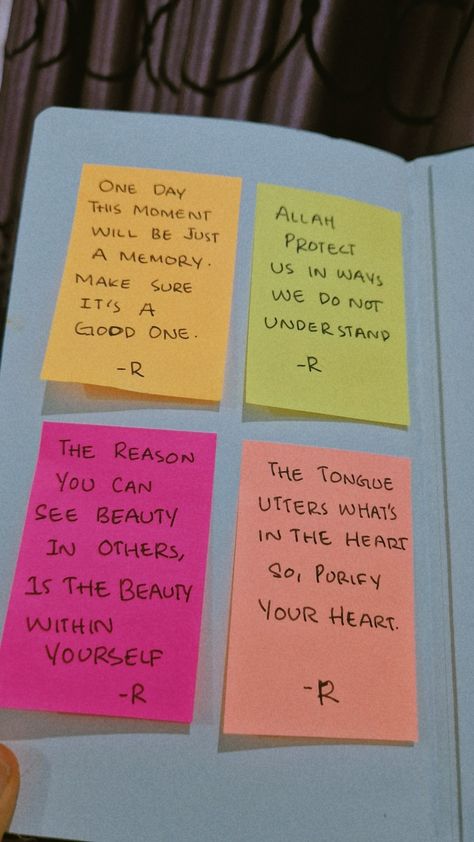 ONE DAY
THIS MOMENT
WILL BE JUST
A MEMORY.
MAKE SURE
IT'S A
GOOD ONE.
-R
ALLAH
PROTECT
US IN WAYS
WE DO NOT
UNDERSTAND
-R
THE REASON
YOU CAN
SEE BEAUTY
IN OTHERS,
IS THE BEAUTY
WITHIN
YOURSELF
-R
THE TONGUE
UTTERS WHAT'S
IN THE HEART
SO, PURIFY
YOUR HEART.
-R